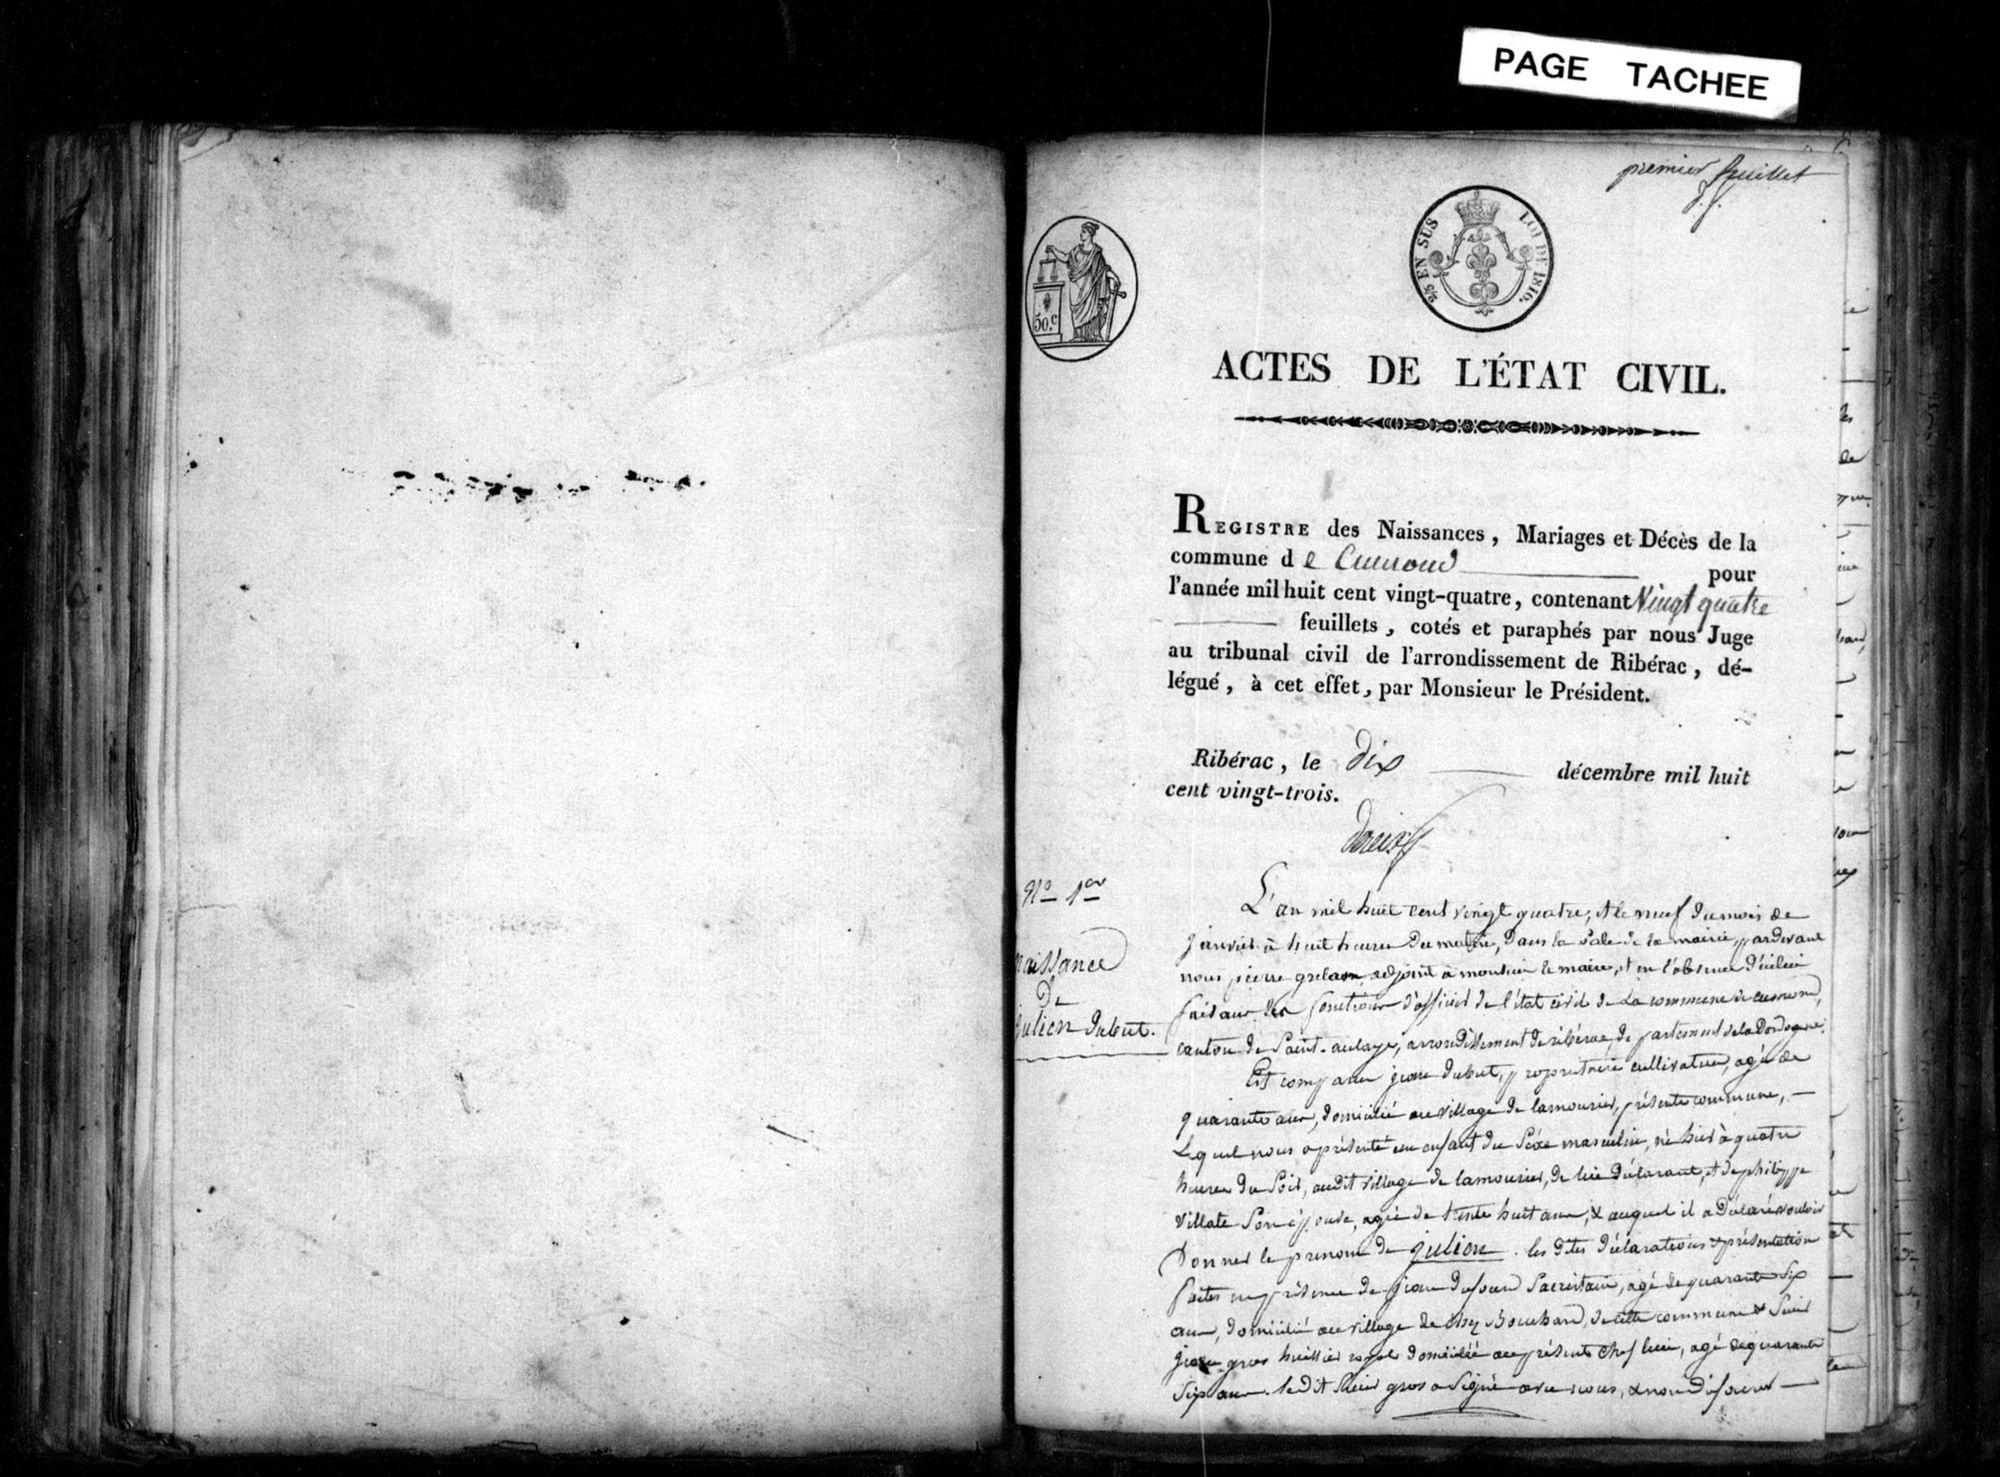 PAGE TACHEE
premier feuillet
2/5 EN SUS LOI DE 1816.
50.c
ACTES DE L'ÉTAT CIVIL.
REGISTRE des Naissances, Mariages et Décès de la
commune de Cumond pour
l'année mil huit cent vingt-quatre, contenant Vingt quatre
feuillets, cotés et paraphés par nous Juge
au tribunal civil de l'arrondissement de Ribérac, dé-
légué, à cet effet, par Monsieur le Président.
Ribérac, le dix décembre mil huit
cent vingt-trois.
N° 1er
naissance
De
julien dubut.
L'an mil huit cent vingt quatre, et le neuf du mois de
janvier à huit heures du matin, Dans la Sale de la mairie, pardevant
nous pierre grelaon, adjoint à monsieur le maire, et en l'absence d'icelui
faisant les fonctions d'officier de l'état civil de La commune de cumond,
canton de Saint-aulaye, arrondissement de ribérac, departement de la Dordogne.
Est comparu jean dubut, proprietaire cultivateur, agé de
quarante ans, domicilié au village de lamourier, présente commune, —
Lequel nous a présenté un enfant du Sèxe masculin, né hier à quatre
heures du Soir, audit village de lamourier, de lui déclarant, et de philippe
Villate Son épouse, agée de trente huit ans, & auquel il a Déclaré vouloir
Donner le prenom de julien. les dites déclarations et présentation
faites en présence de jean dufour Sacristain, agé de quarante Six
ans, domicilié au village de chez Bouchard, de cette commune & Sieur
jean gros huissier royal domicilié au présent chef lieu, agé de quarante
Six ans. le dit Sieur gros a Signé avec nous, & non dufour —